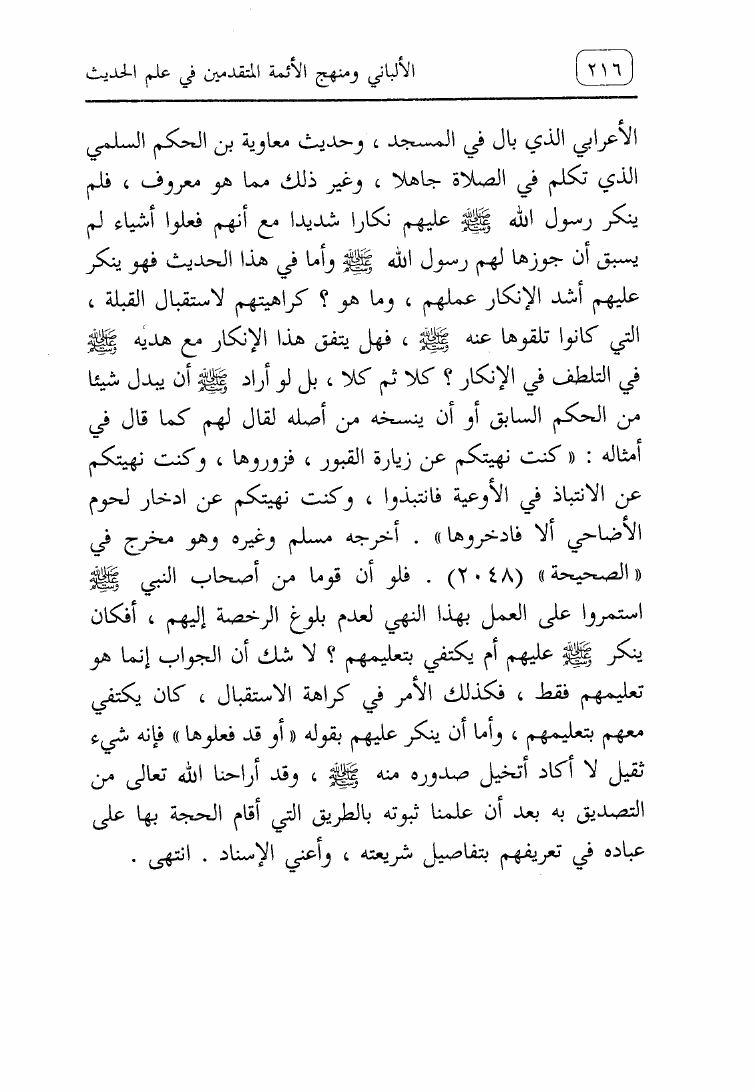 ٢١٦
الألباني ومنهج الأئمة المتقدمين في علم الحديث
الأعرابي الذي بال في المسجد ، وحديث معاوية بن الحكم السلمي
الذي تكلم في الصلاة جاهلا ، وغير ذلك مما هو معروف ، فلم
ينكر رسول الله ﷺ عليهم نكارا شديدا مع أنهم فعلوا أشياء لم
يسبق أن جوزها لهم رسول الله ﷺ وأما في هذا الحديث فهو ينكر
عليهم أشد الإنكار عملهم ، وما هو ؟ كراهيتهم لاستقبال القبلة ،
التي كانوا تلقوها عنه ﷺ ، فهل يتفق هذا الإنكار مع هديه ﷺ
في التلطف في الإنكار ؟ كلا ثم كلا ، بل لو أراد ﷺ أن يبدل شيئا
من الحكم السابق أو أن ينسخه من أصله لقال لهم كما قال في
أمثاله : « كنت نهيتكم عن زيارة القبور ، فزوروها ، وكنت نهيتكم
عن الانتباذ في الأوعية فانتبذوا ، وكنت نهيتكم عن ادخار لحوم
الأضاحي ألا فادخروها» . أخرجه مسلم وغيره وهو مخرج في
« الصحيحة » (٢٠٤٨) . فلو أن قوما من أصحاب النبي ﷺ
استمروا على العمل بهذا النهي لعدم بلوغ الرخصة إليهم ، أفكان
ينكر ﷺ عليهم أم يكتفي بتعليمهم ؟ لا شك أن الجواب إنما هو
تعليمهم فقط ، فكذلك الأمر في كراهة الاستقبال ، كان يكتفي
معهم بتعليمهم ، وأما أن ينكر عليهم بقوله « أو قد فعلوها » فإنه شيء
ثقيل لا أكاد أتخيل صدوره منه ﷺ ، وقد أراحنا الله تعالى من
التصديق به بعد أن علمنا ثبوته بالطريق التي أقام الحجة بها على
عباده في تعريفهم بتفاصيل شريعته ، وأعني الإسناد . انتهى .